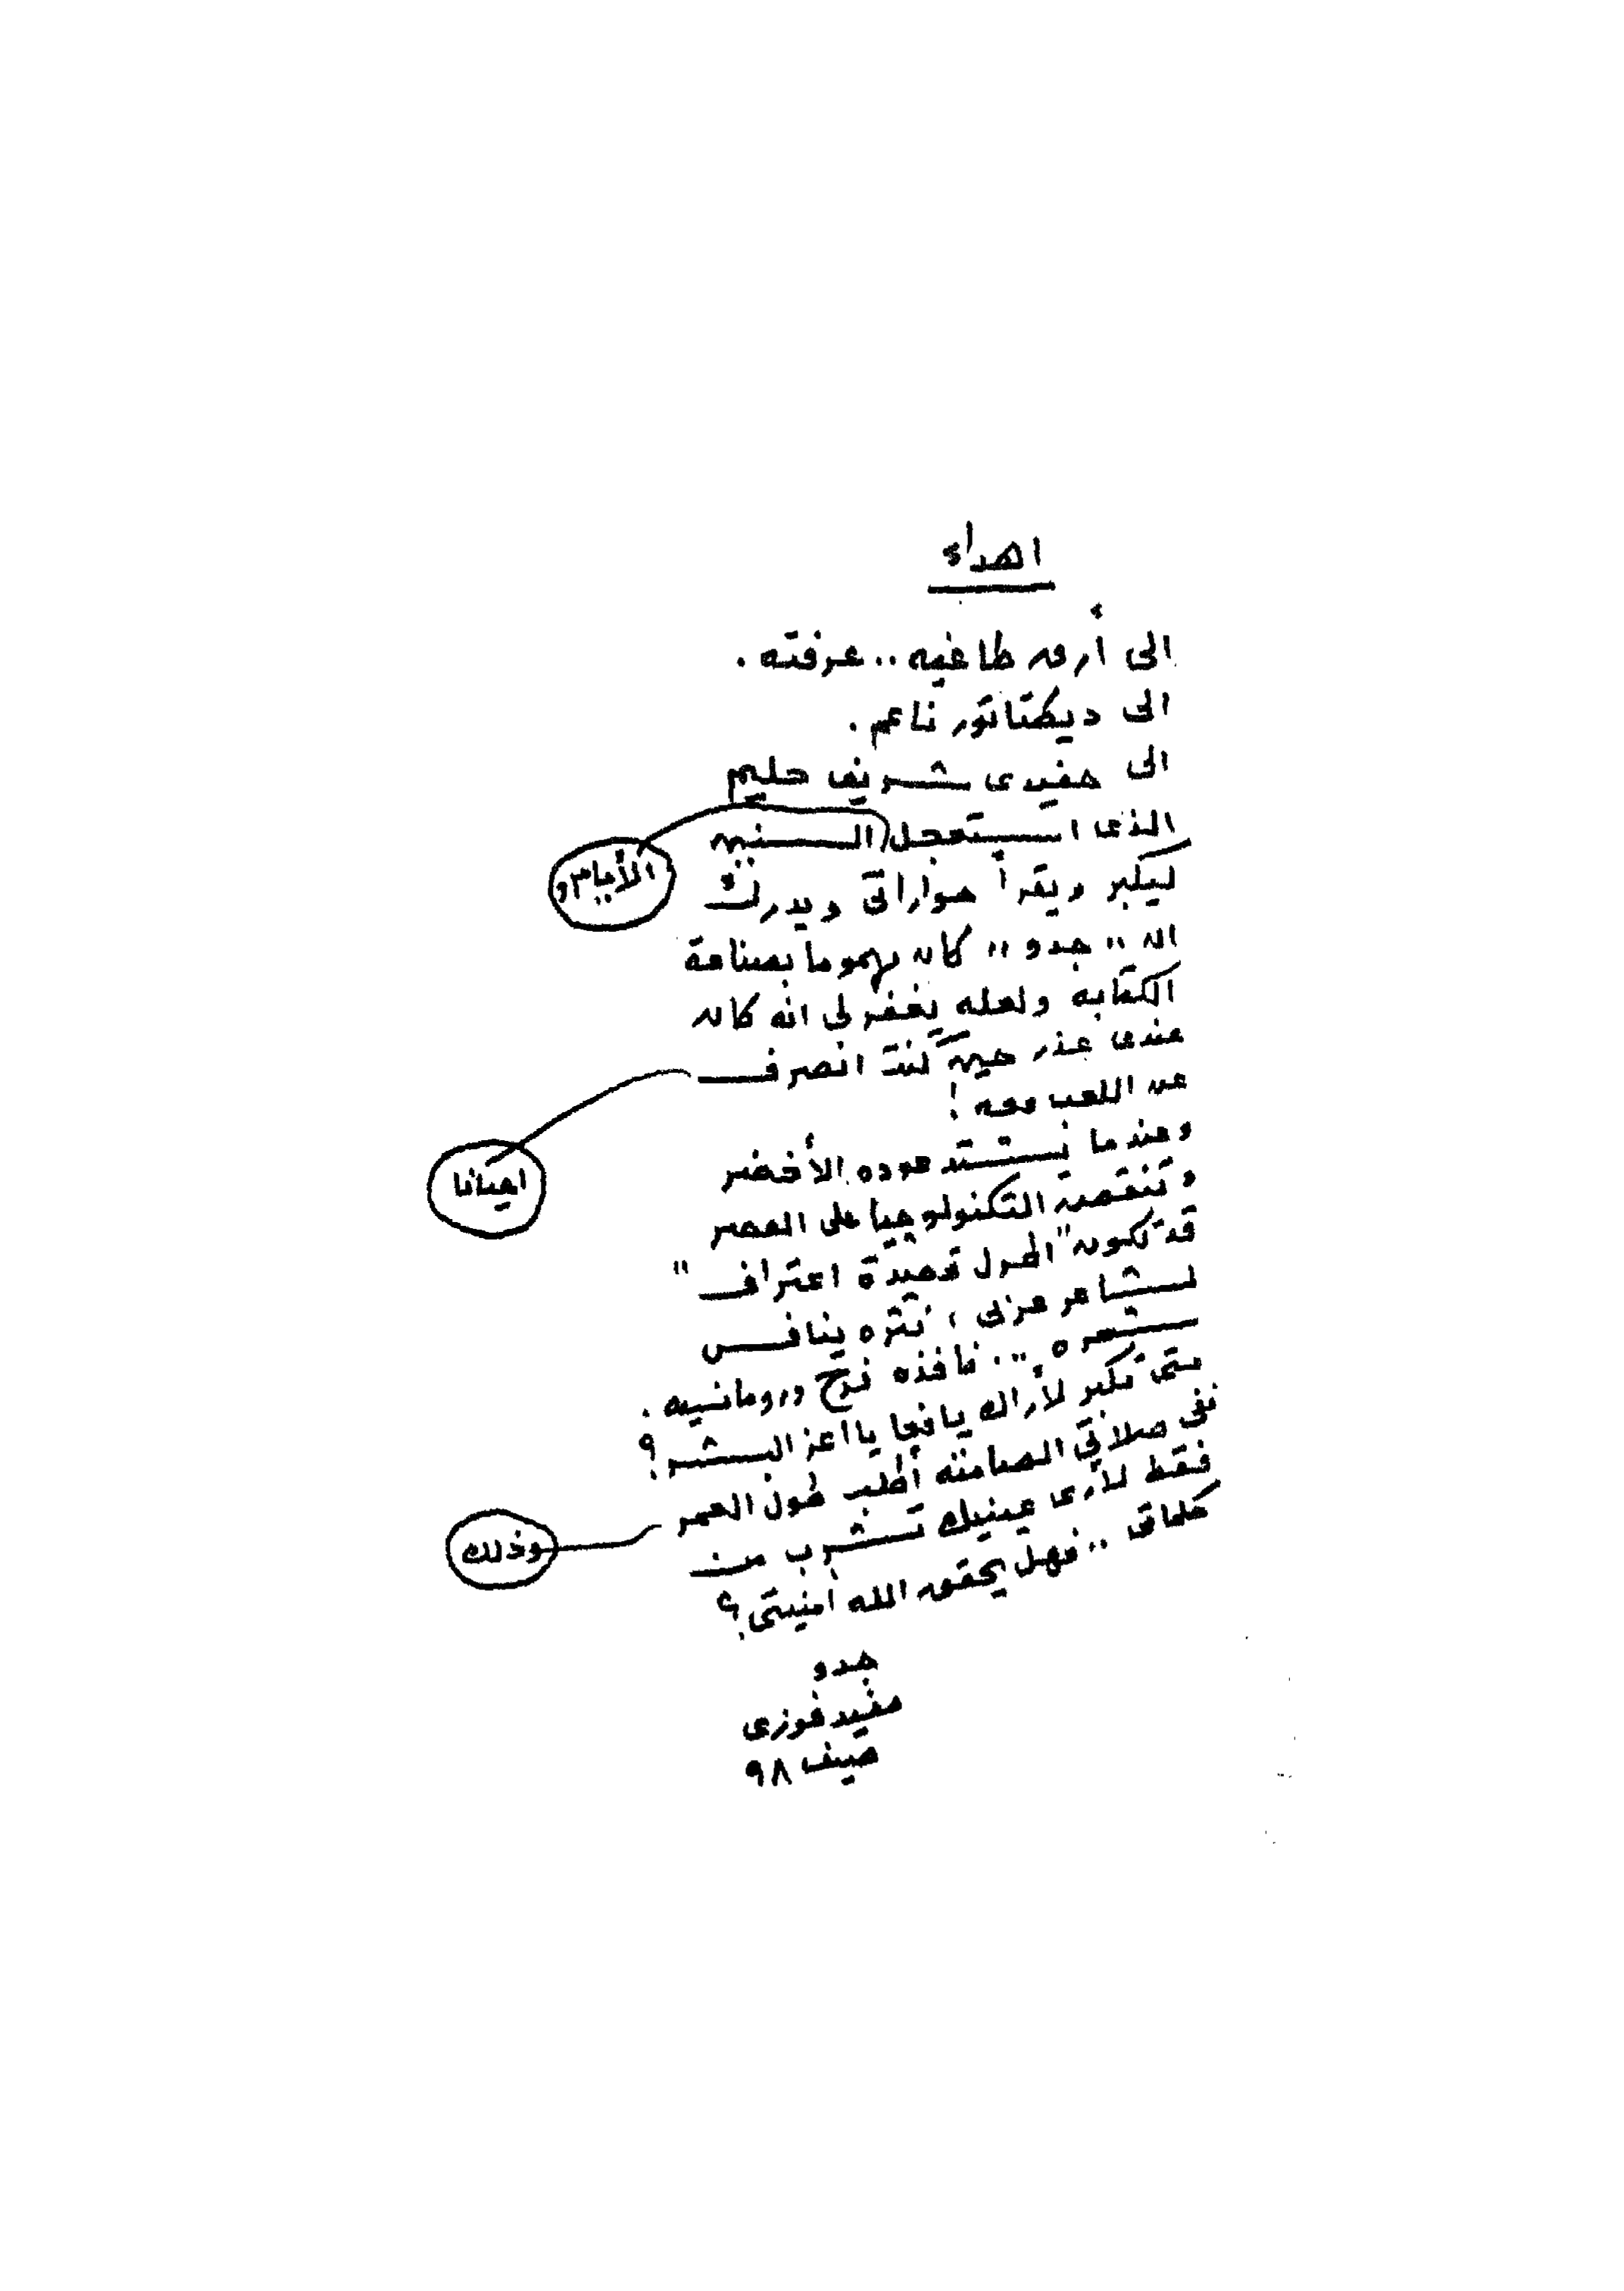 اهداء
الى أرق طاغيه .. عرفته .
الى ديكتاتور ناعم .
الى حفيدى شريف حليم
الذى استعجل السنين
الأيام و
ليكبر ويقرأ حواراتى ويدرك
ان " جدو " كان مهموما بصناعة
الكتابه ولعله يغفر لى انه كان
عندى عذر حين كنت انصرف
احيانا
عن اللعب معه !
وعندما يشتد عوده الأخضر
و التكنولوجيا على العصر
قد تكون " اطول قصيدة اعتراف "
لشاعر عربى ، نثره ينافس
شعره ... نافذه فرح ورومانسيه .
متى تكبر لأراك يافعا يا أعز البشر ؟
ففى صلاتى الصامته أطلب طول العمر
وذلك
فقط لأرى عينيك تشرب من
كلماتى .. فهل يحقق الله امنيتى ؟
جدو
مفيد فوزى
صيف ٩٨